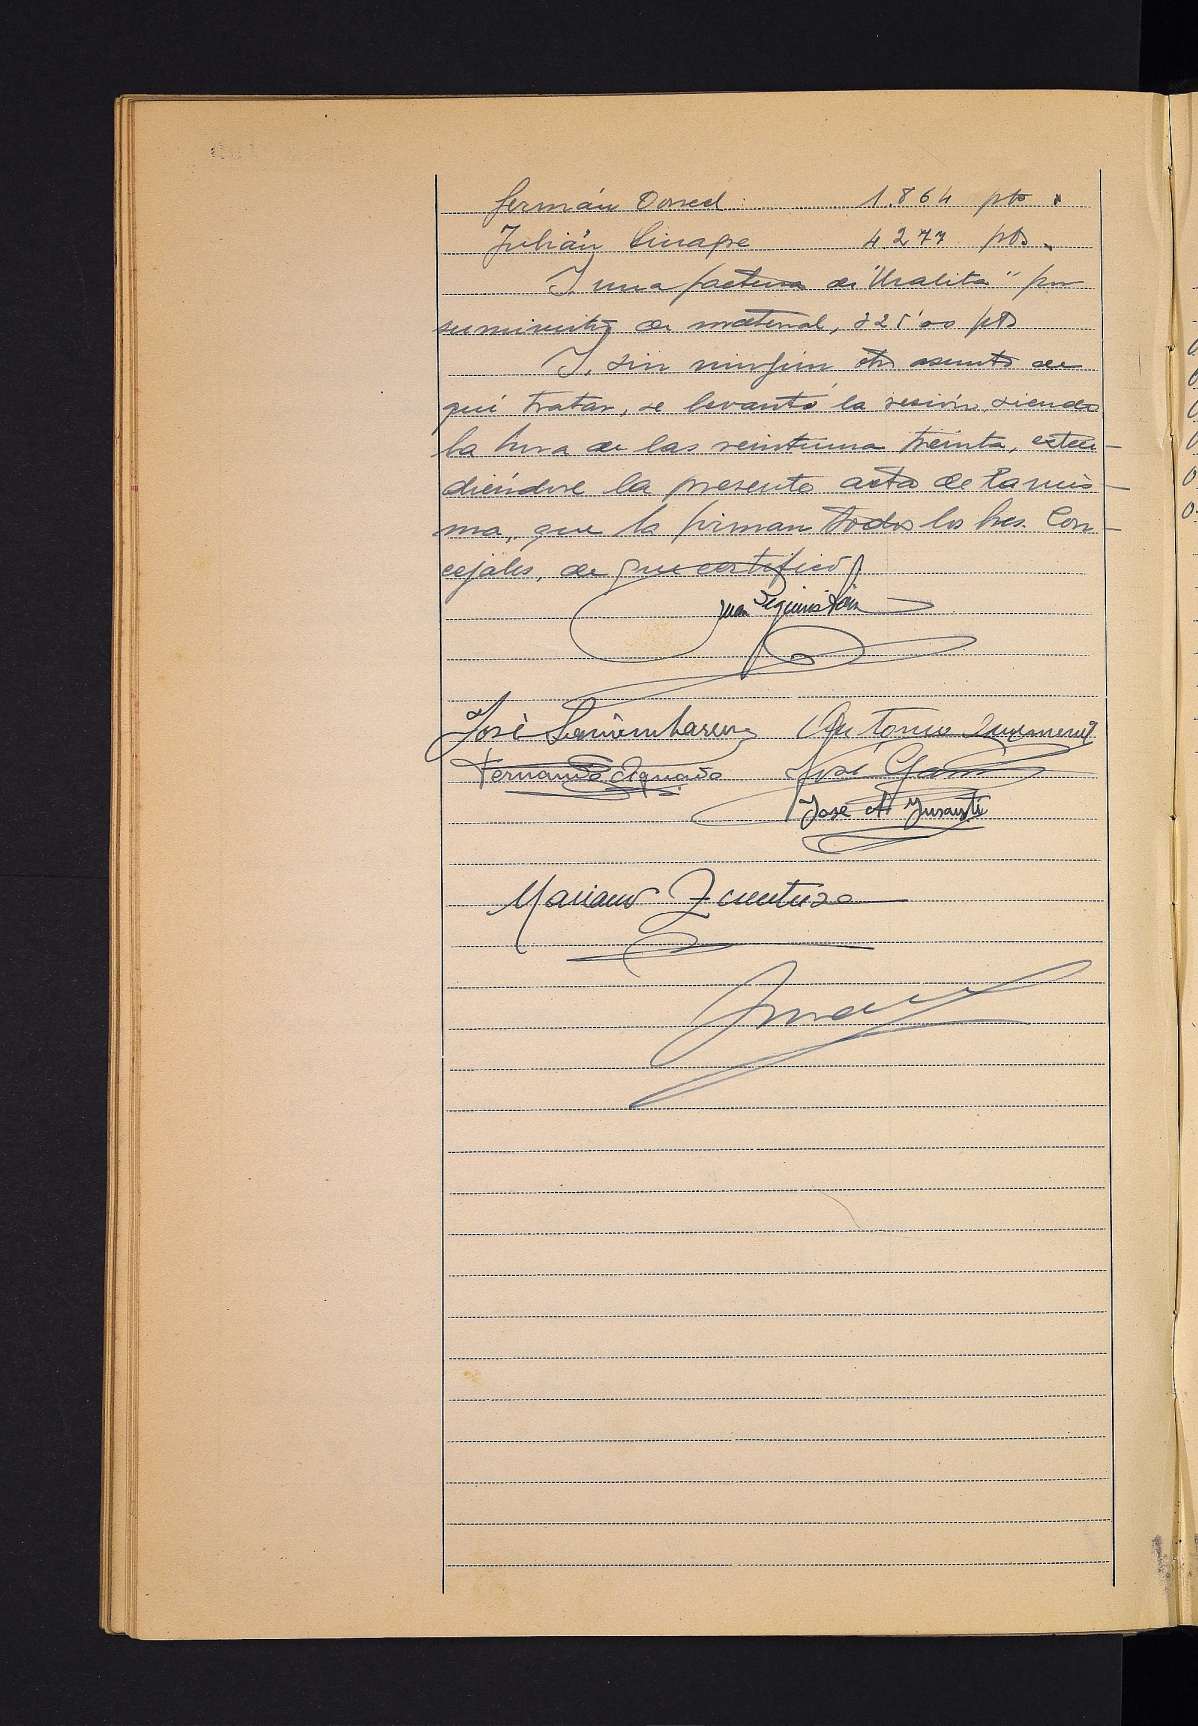 Germán Dorsed 1.864 pts.
Julián Linage 4.277 pts.
Y una factura de "Uralita" por
suministro de material, 225'00 pts
Y, sin ningún otro asunto de
qué tratar, se levantó la sesión, siendo
la hora de las veintiuna treinta, exten-
diéndose la presente acta de la mis-
ma, que la firman todos los Sres. Con-
cejales, de que certifico.
Juan
José Antonio
Fernando Aguado José
José A.
Mariano